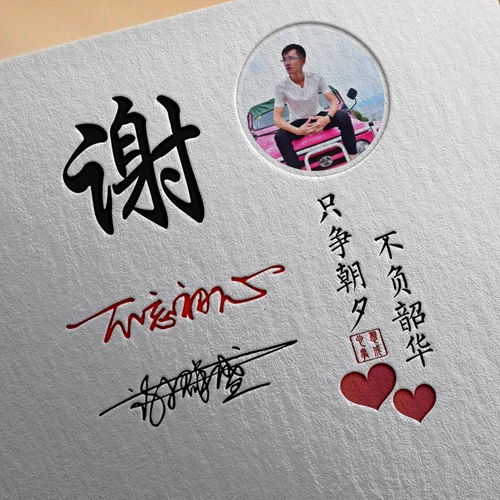 谢
只争朝夕
不负韶华
不忘初心